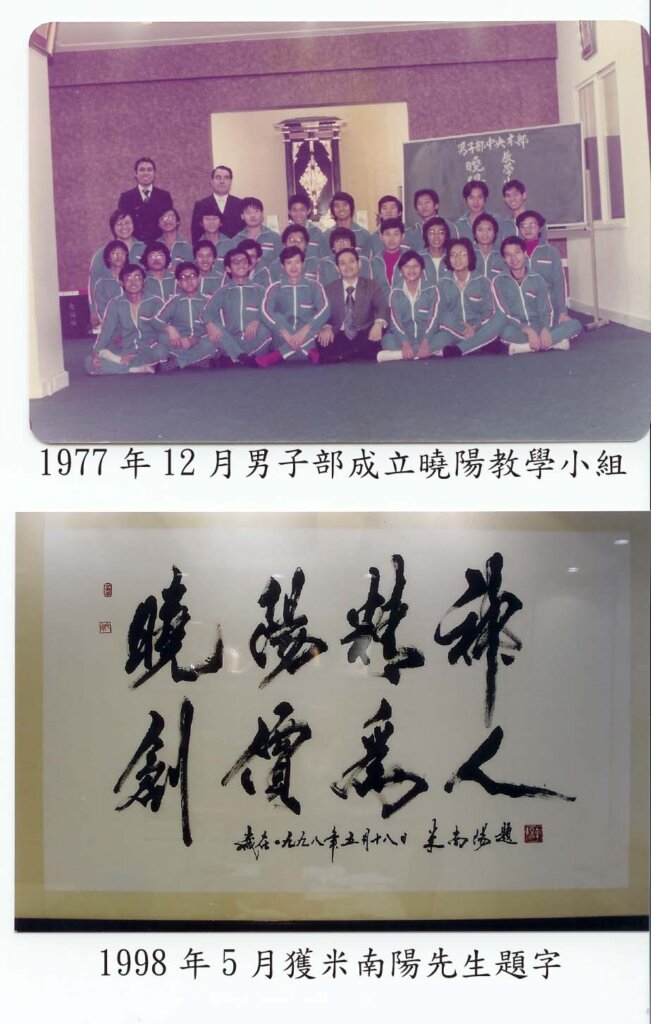 男子部中央本部
曉 教學
1977年12月男子部成立曉陽教學小組
曉陽精神
創價爲人
歲在一九九八年五月十八日 米南陽題
1998年5月獲米南陽先生題字